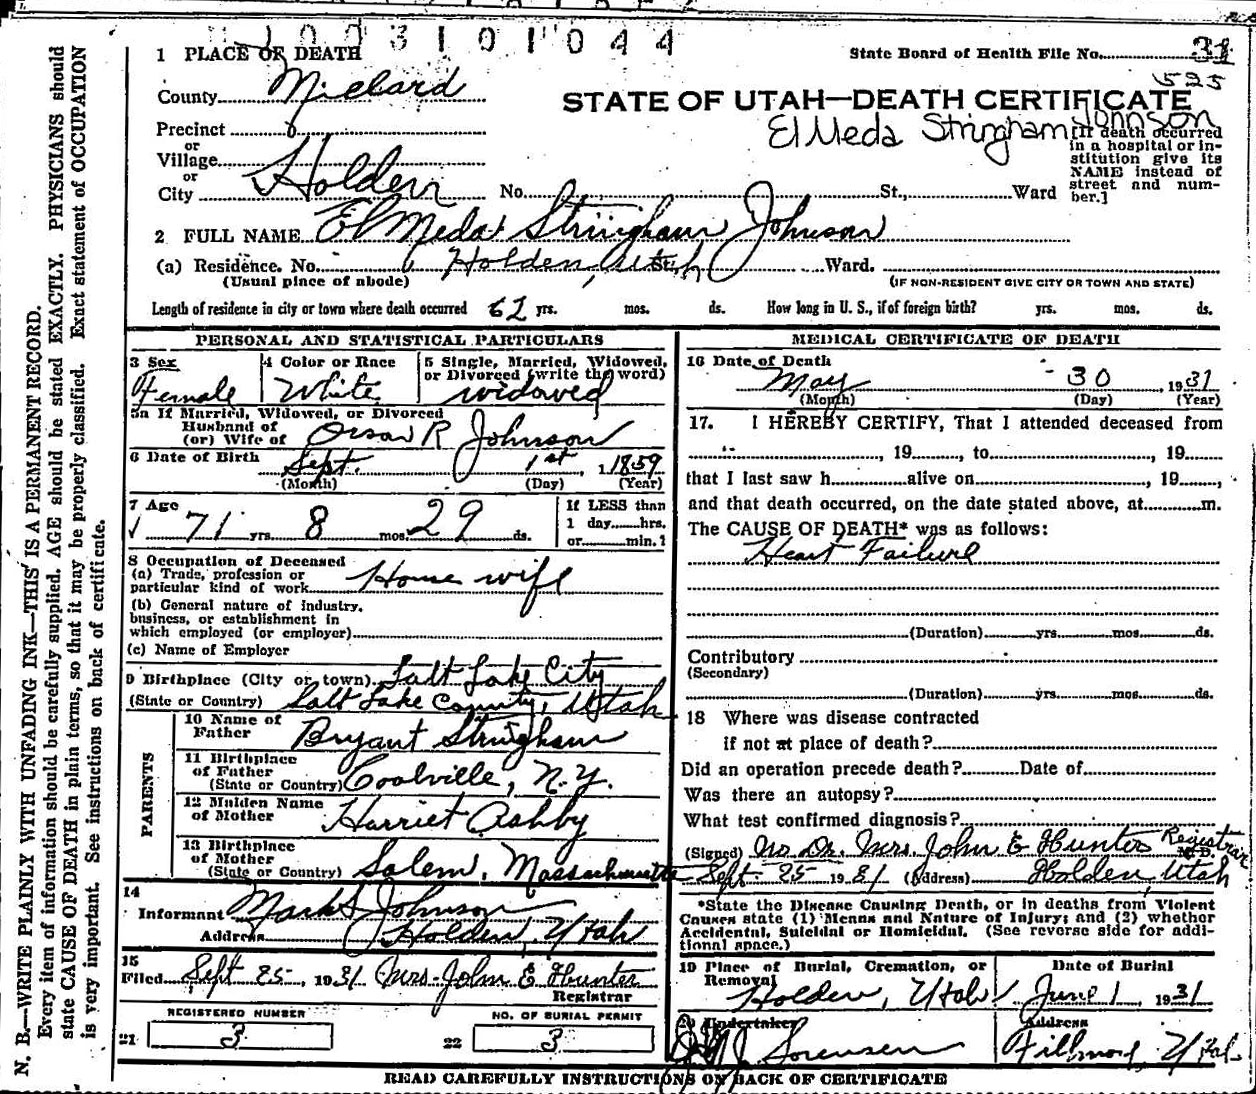 1003101044
1 PLACE OF DEATH
State Board of Health File No. 31
525
County Millard
STATE OF UTAH—DEATH CERTIFICATE
Precinct
El Meda Stringham Johnson
or
Village
or
City Holden No. St., Ward
[If death occurred
in a hospital or in-
stitution give its
NAME instead of
street and num-
ber.]
2 FULL NAME El Meda Stringham Johnson
(a) Residence. No. Holden, Utah St., Ward.
(Usual place of abode) (IF NON-RESIDENT GIVE CITY OR TOWN AND STATE)
Length of residence in city or town where death occurred 62 yrs. mos. ds. How long in U. S., if of foreign birth? yrs. mos. ds.
PERSONAL AND STATISTICAL PARTICULARS
3 Sex 4 Color or Race 5 Single, Married, Widowed,
or Divorced (write the word)
Female White widowed
5a If Married, Widowed, or Divorced
Husband of
(or) Wife of Orson R Johnson
6 Date of Birth Sept. 1st, 1859
(Month) (Day) (Year)
7 Age
71 yrs. 8 mos. 29 ds.
If LESS than
1 day......hrs.
or..........min.?
8 Occupation of Deceased
(a) Trade, profession or
particular kind of work House wife
(b) General nature of industry,
business, or establishment in
which employed (or employer)
(c) Name of Employer
9 Birthplace (City or town) Salt Lake City
(State or Country) Salt Lake County, Utah
PARENTS
10 Name of
Father Bryant Stringham
11 Birthplace
of Father
(State or Country) Coolville, N.Y.
12 Maiden Name
of Mother Harriet Ashby
13 Birthplace
of Mother
(State or Country) Salem, Massachusetts
14
Informant Mark S Johnson
Address Holden, Utah
15
Filed Sept 25, 1931 Mrs. John E Hunter
Registrar
REGISTERED NUMBER NO. OF BURIAL PERMIT
21 3 22 3
MEDICAL CERTIFICATE OF DEATH
16 Date of Death
May 30, 1931
(Month) (Day) (Year)
17. I HEREBY CERTIFY, That I attended deceased from
, 19 , to , 19 ,
that I last saw h alive on , 19 ,
and that death occurred, on the date stated above, at m.
The CAUSE OF DEATH* was as follows:
Heart Failure
(Duration) yrs. mos. ds.
Contributory
(Secondary)
(Duration) yrs. mos. ds.
18 Where was disease contracted
if not at place of death?
Did an operation precede death? Date of
Was there an autopsy?
What test confirmed diagnosis?
(Signed) No Dr. Mrs. John E Hunter Registrar M.D.
Sept. 25 1931 (Address) Holden, Utah
*State the Disease Causing Death, or in deaths from Violent
Causes state (1) Means and Nature of Injury; and (2) whether
Accidental, Suicidal or Homicidal. (See reverse side for addi-
tional space.)
19 Place of Burial, Cremation, or
Removal
Date of Burial
Holden, Utah June 1, 1931
20 Undertaker Address
J. Sorensen Fillmore, Utah
READ CAREFULLY INSTRUCTIONS ON BACK OF CERTIFICATE
N. B.—WRITE PLAINLY WITH UNFADING INK—THIS IS A PERMANENT RECORD.
Every item of information should be carefully supplied. AGE should be stated EXACTLY. PHYSICIANS should
state CAUSE OF DEATH in plain terms, so that it may be properly classified. Exact statement of OCCUPATION
is very important. See instructions on back of certificate.